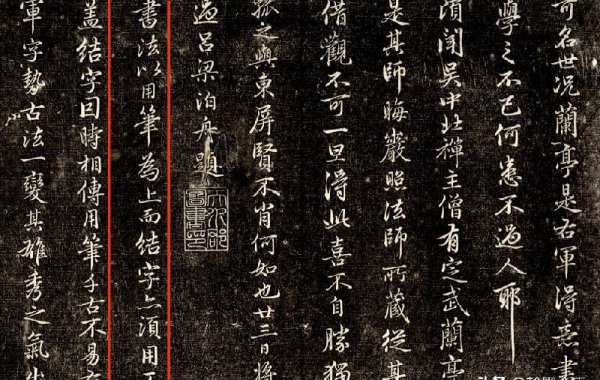 可名世况蘭亭是右軍得意書
學之不已何患不過人耶
頃聞吳中北禪主僧有定武蘭亭
是其師晦巖照法師所藏從其
借觀不可一旦得此喜不自勝獨
孤之與東屏賢不肖何如也廿三日將
過呂梁泊舟題
天水郡圖書印
書法以用筆為上而結字亦須用工
蓋結字因時相傳用筆千古不易右
軍字勢古法一變其雄秀之氣出